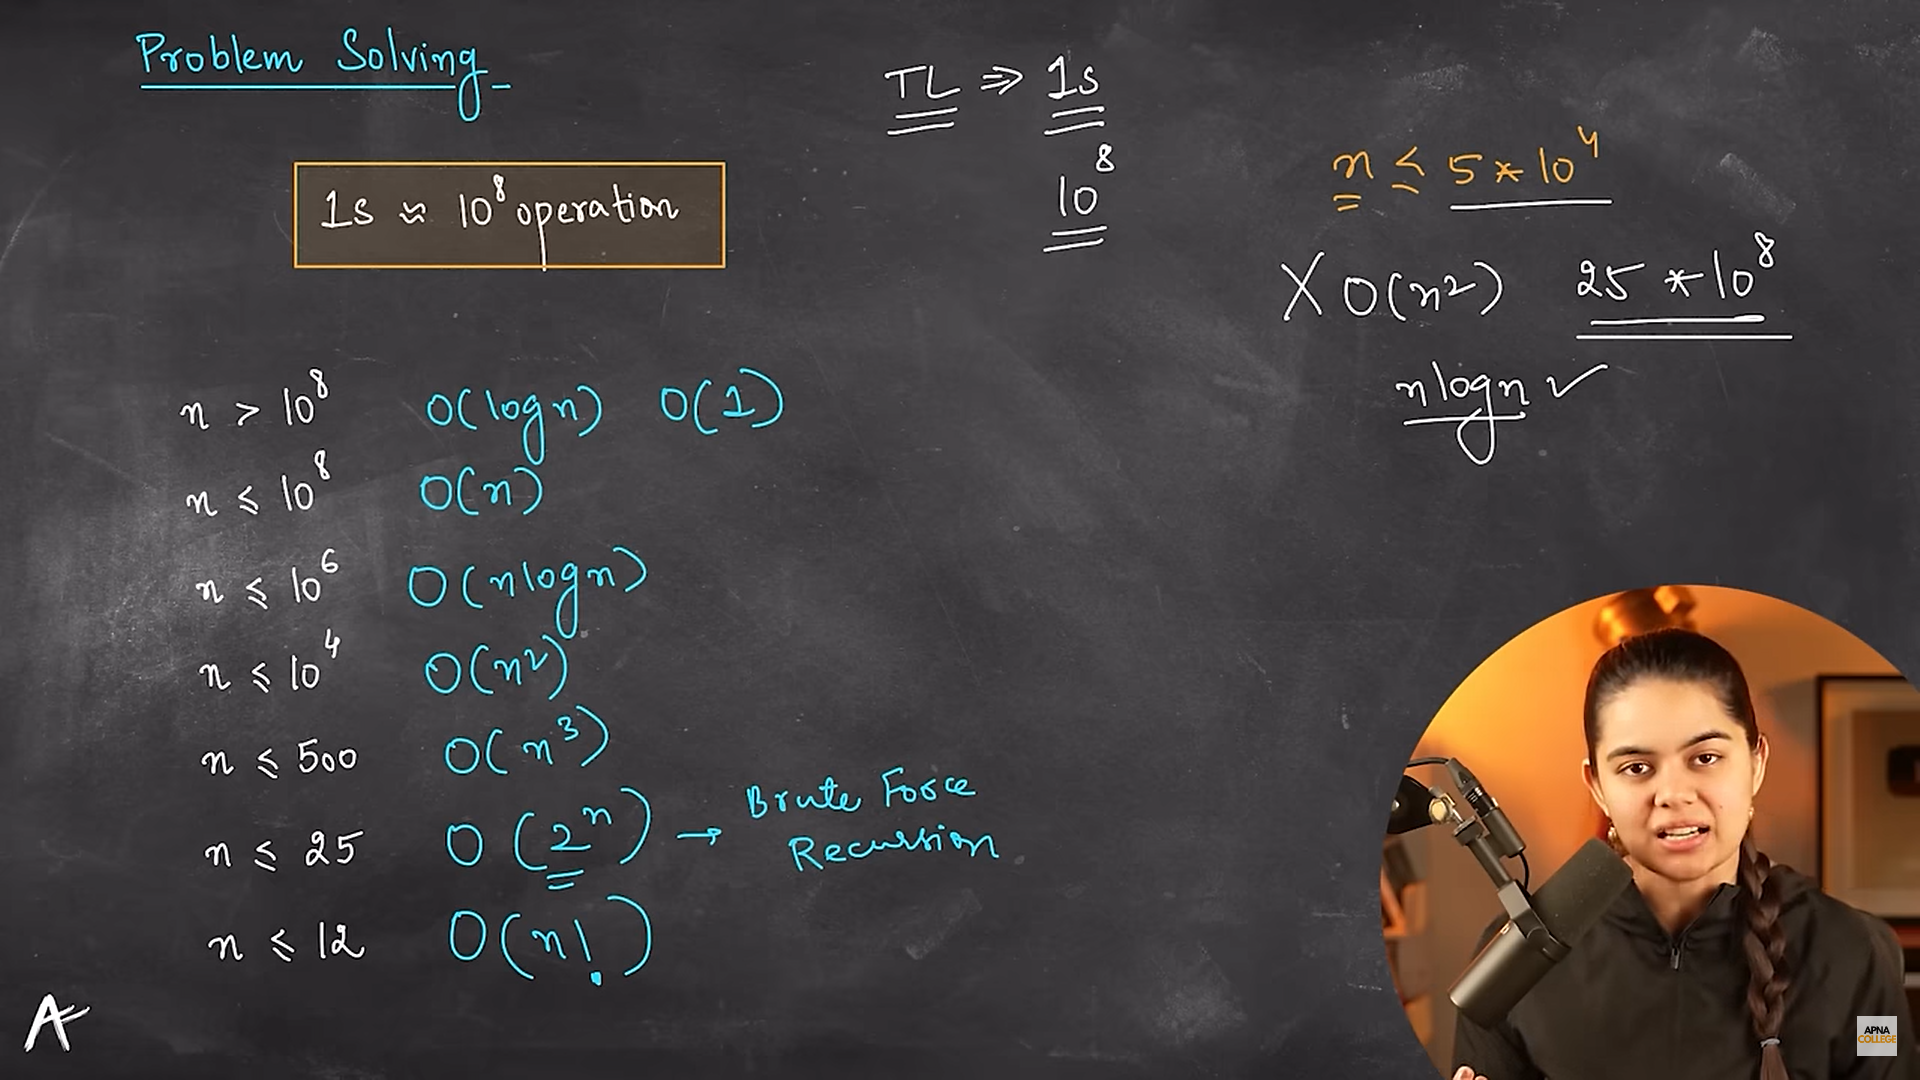 Problem Solving
1s ≈ 10⁸ operation
TL ⇒ 1s
10⁸
n ≤ 5*10⁴
X O(n²) 25*10⁸
nlogn ✓
n > 10⁸ O(logn) O(1)
n ≤ 10⁸ O(n)
n ≤ 10⁶ O(nlogn)
n ≤ 10⁴ O(n²)
n ≤ 500 O(n³)
n ≤ 25 O(2ⁿ) → Brute Force
Recursion
n ≤ 12 O(n!)
A
APNA
COLLEGE